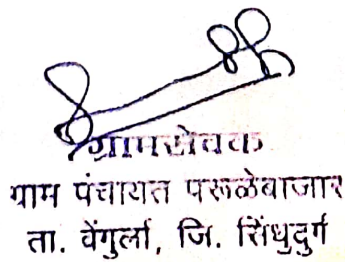 ग्रामसेवक
ग्राम पंचायत परूळेबाजार
ता. वेंगुर्ला, जि. सिंधुदुर्ग